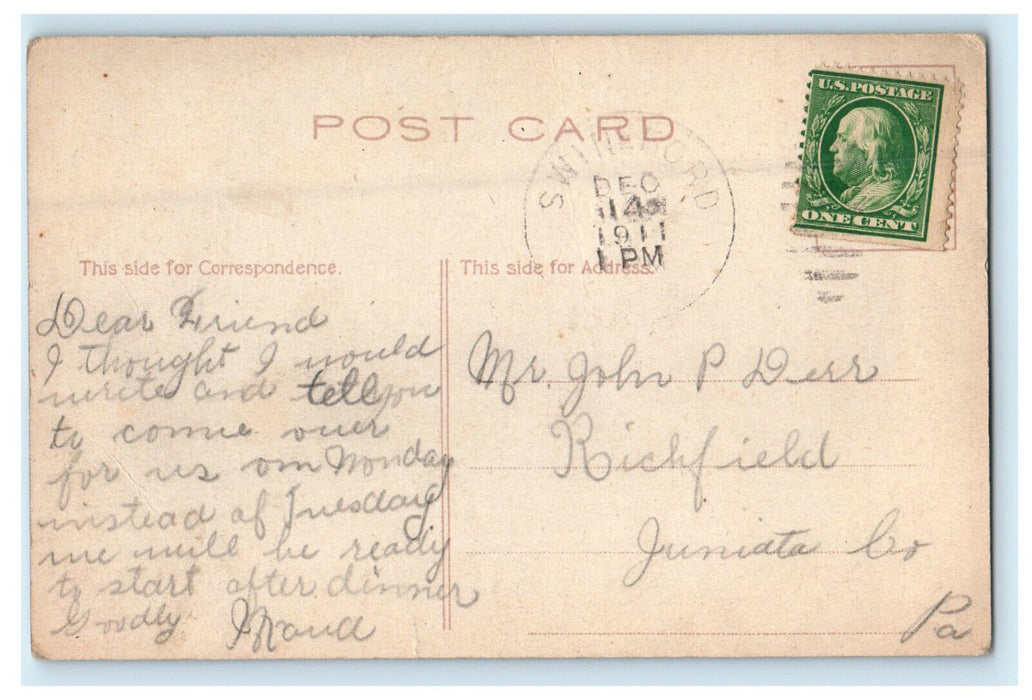 POST CARD
SWINEFORD
DEC
14
1911
1 PM
U.S. POSTAGE
ONE CENT
This side for Correspondence.
This side for Address.
Dear Friend
I thought I would
write and tell you
to come over
for us on Monday
instead of Tuesday
we will be ready
to start after dinner
Goodby Maud
Mr. John P Derr
Richfield
Juniata Co
Pa